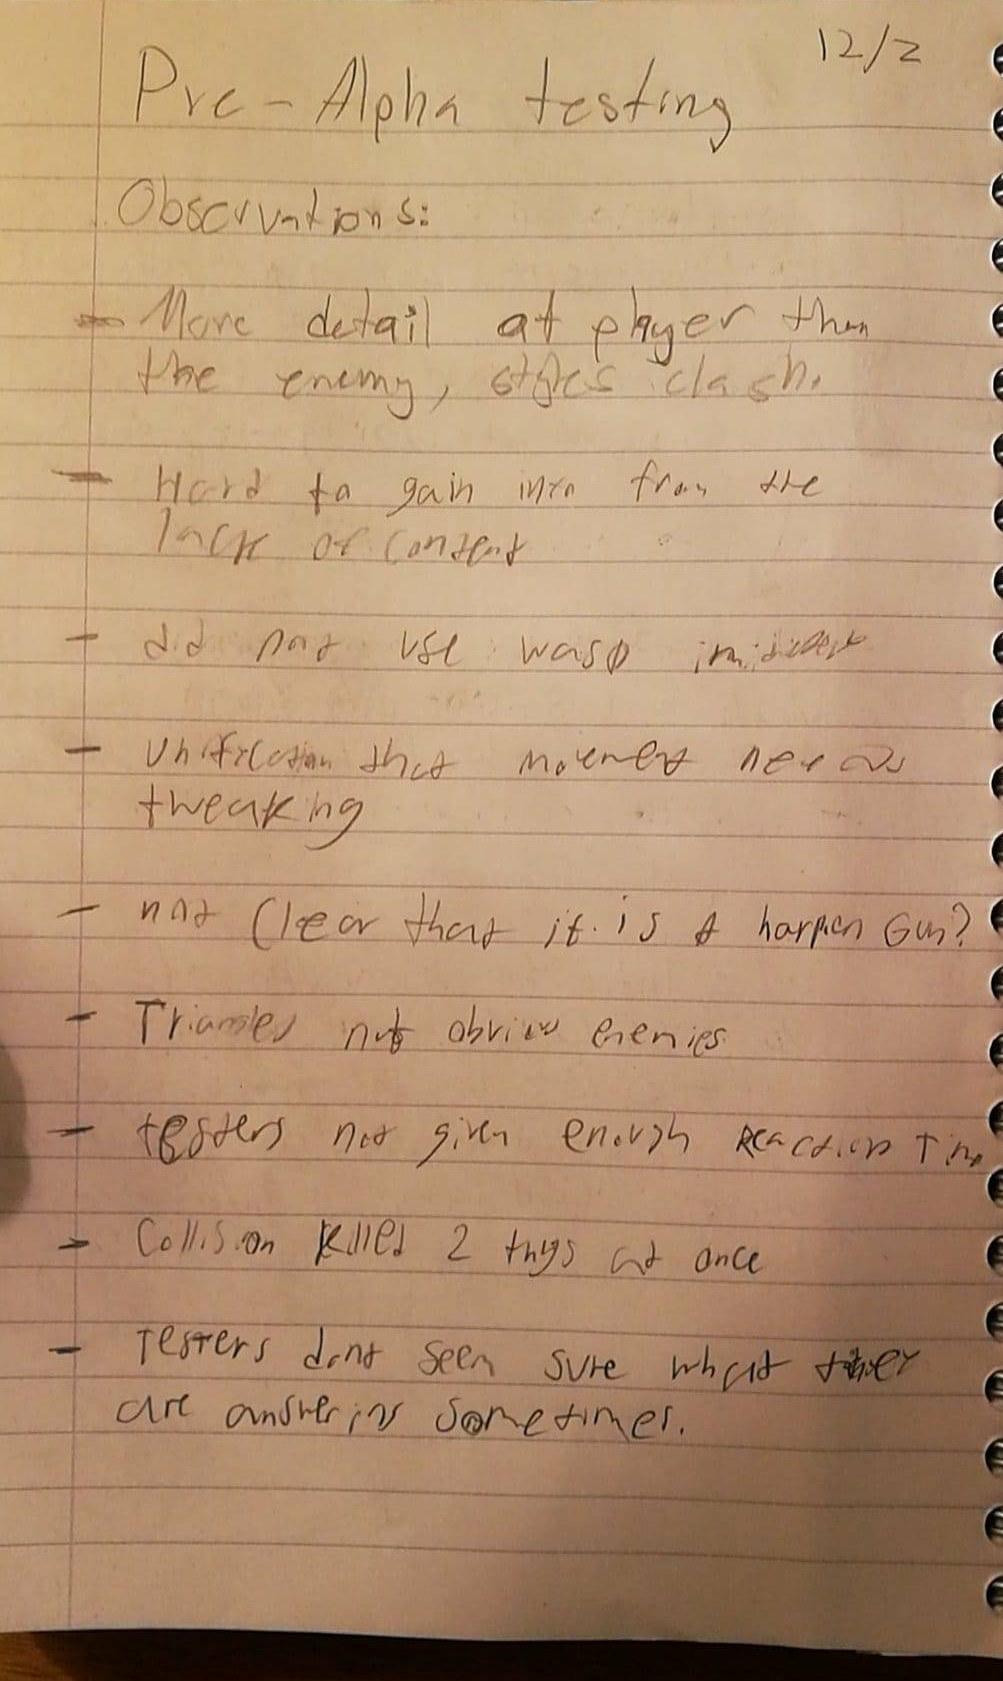 12/2
Pre-Alpha testing
Observations:
- More detail at player then
the enemy, styles clash.
- Hard to gain info from the
lack of content
- did not use wasd
- that movement needs
tweaking
- not Clear that it is a harpen Gun?
- Triangles not obvious enemies
- testers not given enough Reaction Tim
- Collision killed 2 things at once
- Testers dont seem sure what they
are answering sometimes.